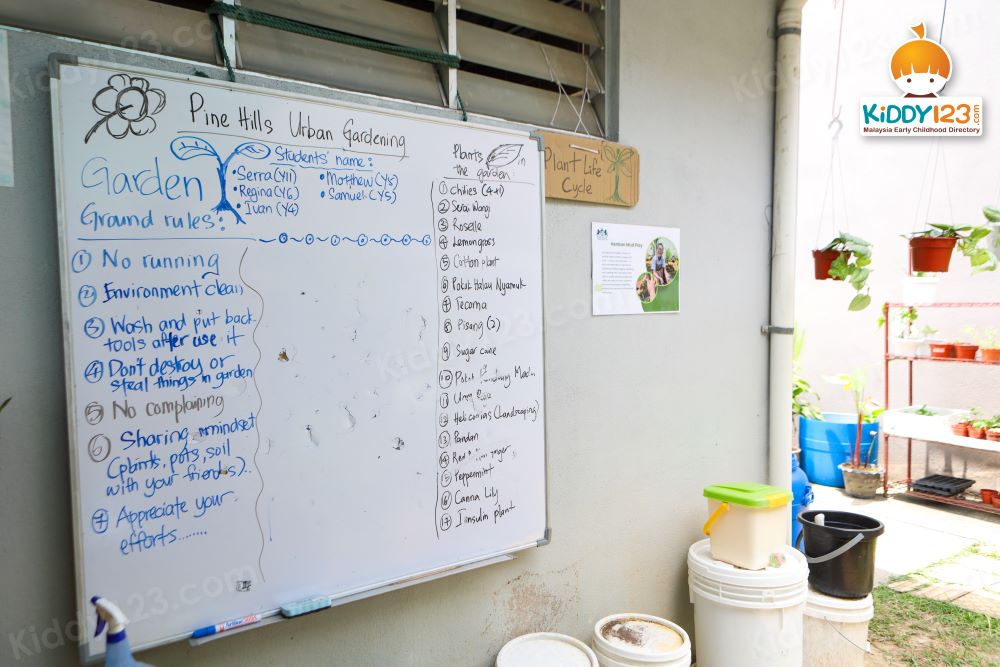 Pine Hills Urban Gardening
Garden
Ground rules:
Students' name:
• Serra (Y11)
• Regina (Y6)
• Ivan (Y4)
• Matthew (Y5)
• Samuel (Y5)
① No running
② Environment clean
③ Wash and put back
tools after use it
④ Don't destroy or
steal things in garden
⑤ No complaining
⑥ Sharing mindset
(plants, pots, soil
with your friends)..
⑦ Appreciate your
efforts........
Plants in
the garden
① chilies (4+1)
② Serai Wangi
③ Roselle
④ Lemongrass
⑤ Cotton plant
⑥ Pokok Halau Nyamuk
⑦ Tecoma
⑧ Pisang (2)
⑨ Sugar cane
⑩ Pokok
⑪
⑫ Heliconias (Landscaping)
⑬ Pandan
⑭ Red ginger
⑮ Peppermint
⑯ Canna Lily
⑰ Iinsulin plant
Plant Life
Cycle
Mud Play
KiDDY123.com
Malaysia Early Childhood Directory
Kiddy123.com